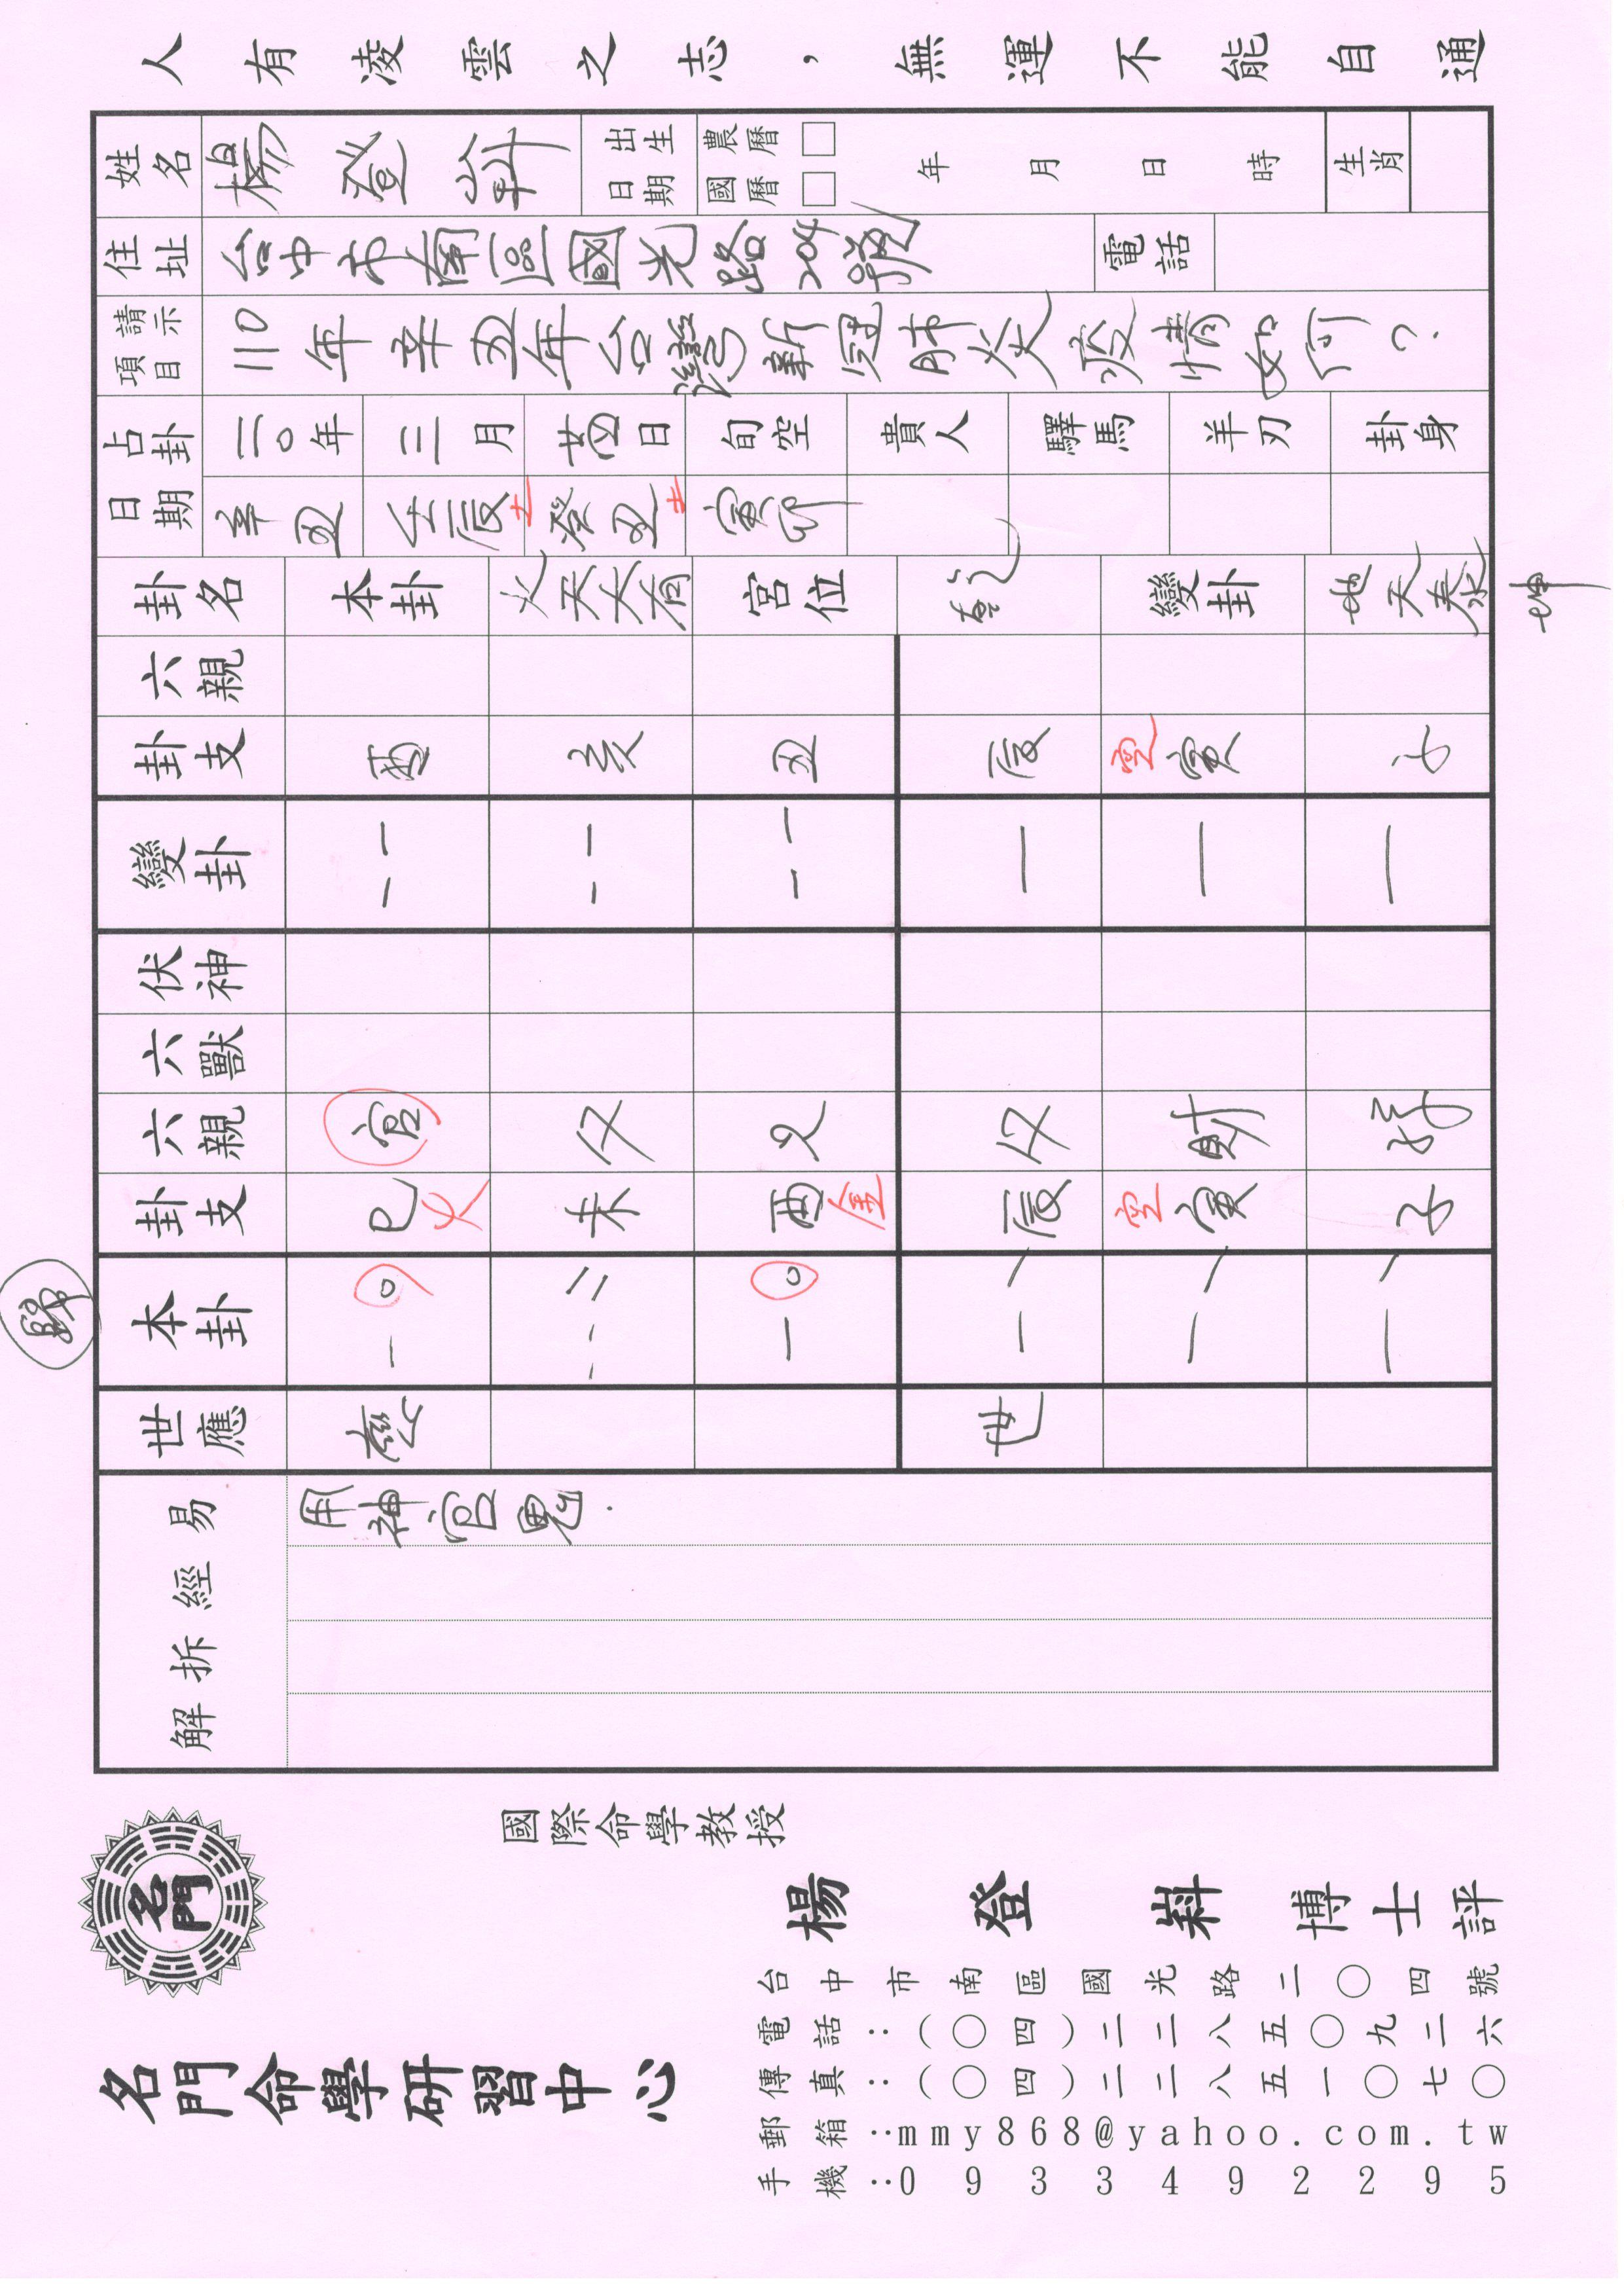 人有凌雲之志，無運不能自通
姓名 楊登嵙 出生日期 農曆□ 國曆□ 年 月 日 時 生肖
住址 台中市南區國光路204號 電話
請示項目 110年辛丑年台灣新冠肺炎疫情如何?
占卦日期 一一〇年 三月 廿四日 旬空 貴人 驛馬 羊刃 卦身
辛丑 壬辰土 癸丑土 寅卯
卦名 本卦 火天大有 宮位 乾 變卦 地天泰 坤
六親
卦支 酉 亥 丑 辰 空寅 子
變卦
伏神
六獸
六親 官 父 兄 父 財 子孫
卦支 巳火 未 酉金 辰 空寅 子
歸
本卦
世應 應 世
解拆經易 用神官鬼.
名門
名門命學研習中心
國際命學教授
楊登嵙博士評
台中市南區國光路二〇四號
電話：（〇四）二二八五〇九二六
傳真：（〇四）二二八五一〇七〇
郵箱：mmy868@yahoo.com.tw
手機：0933492295